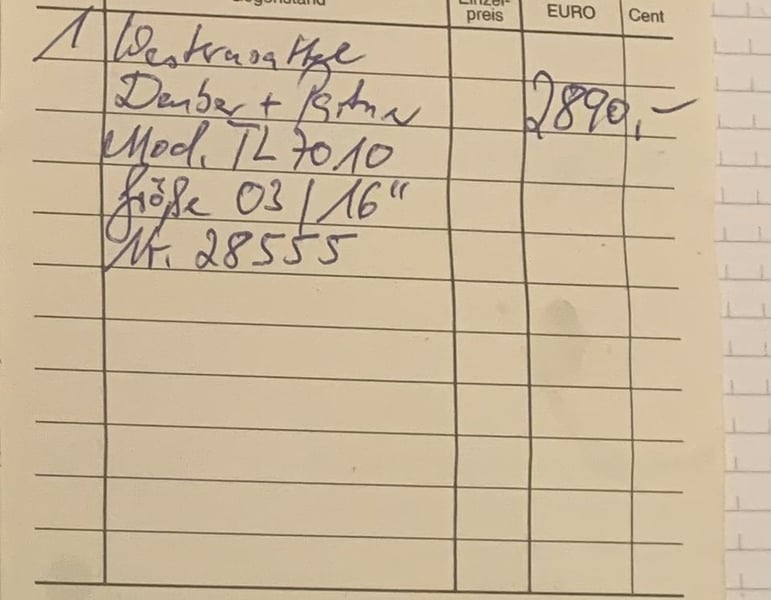 Gegenstand Einzel-
preis EURO Cent
1 Westernsattel
Deuber + Partner 2890,–
Mod. TL 7010
Größe 03 / 16“
Nr. 28555